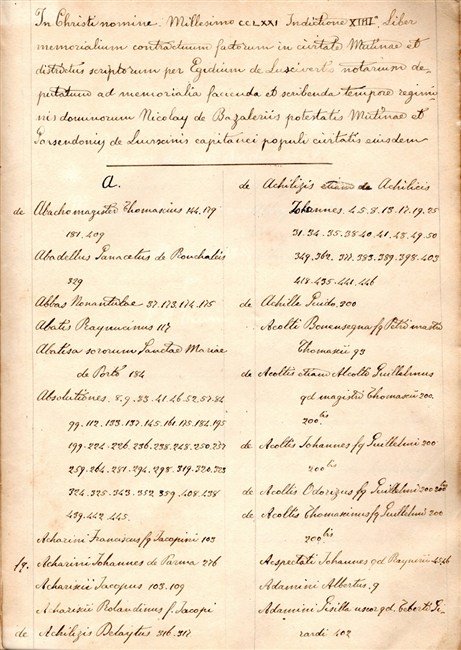 In Christi nomine. Millesimo CCLXXI Indictione XIIII.ª Liber
memorialium contractuum factorum in civitate Mutinae et
districtus scriptorum per Egidium de notarium de-
putatum ad memorialia facienda et scribenda tempore regimi-
nis domnorum Nicolay de Bazaleriis potestatis Mutinae et
de capitanei populi civitatis eiusdem
a.
de Abacho magister Thomaxius 144.179
181.409
Abadellus Panacetus de Ronchaliis
329
Abbas Nonantulae 37.173.174.175
Abatis Raynucinus 117
Abatisa sororum Sanctae Mariae
de Porto 184
Absolutiones. 8.9.33.41.46.52.57.84
99.112.133.137.145.161.175.184.195
199.224.226.236.238.248.250.257
259.264.281.294.298.319.320.323
324.325.343.352.359.408.438
439.442.445.
Acharini Franciscus fq Jacopini 103
fq. Acharini Johannes de Parma 276
Acharixii Jacopus 103.109
Acharixii Rolandinus f Jacopi
de Achilixis Delaytus 316.317
de Achilixis etiam de Achilicis
Johannes 4.5.8.13.17.19.25
31.34.35.38.40.41.48.49.50
349.362.377.383.389.398.403
418.435.441.446
de Achille Guido 200
Acolti Bonensegna fq Petri mastri
Thomaxii 93
de Acoltis etiam Alcolto Guillelmus
qd magistri Thomaxii 200.
200 bis
de Acoltis Johannes fq Guillelmi 200
200 bis
de Acoltis Odorizus fq Guillelmi 200 200 bis
de Acoltis Thomaxinus fq Guillelmi 200
200 bis
Acspectati Johannes qd Raynerii 45.46
Adamini Albertus. 9
Adamini Gisilla uxor qd. Ge-
rardi 402